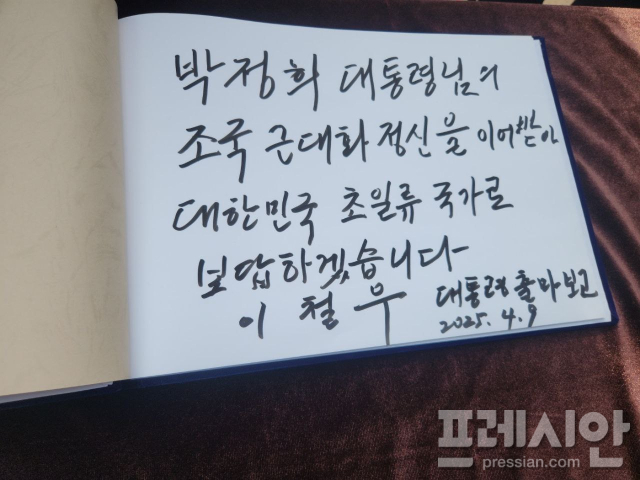 박정희 대통령님의
조국 근대화 정신을 이어받아
대한민국 초일류 국가로
보답하겠습니다
이철우 대통령출마보고
2025. 4. 9
프레시안
pressian.com